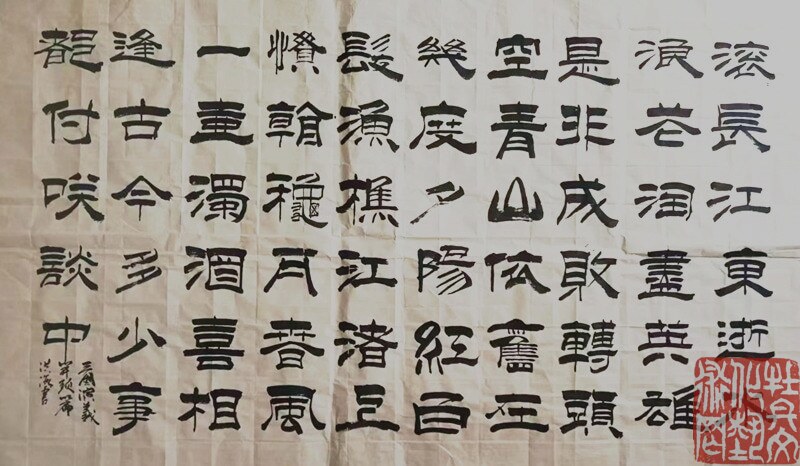 滾長江東逝
浪花淘盡英雄
是非成敗轉頭
空青山依舊在
幾度夕陽紅白
髮漁樵江渚上
慣看穐月春風
一壺濁酒喜相
逢古今多少事
都付咲談中
三國演義